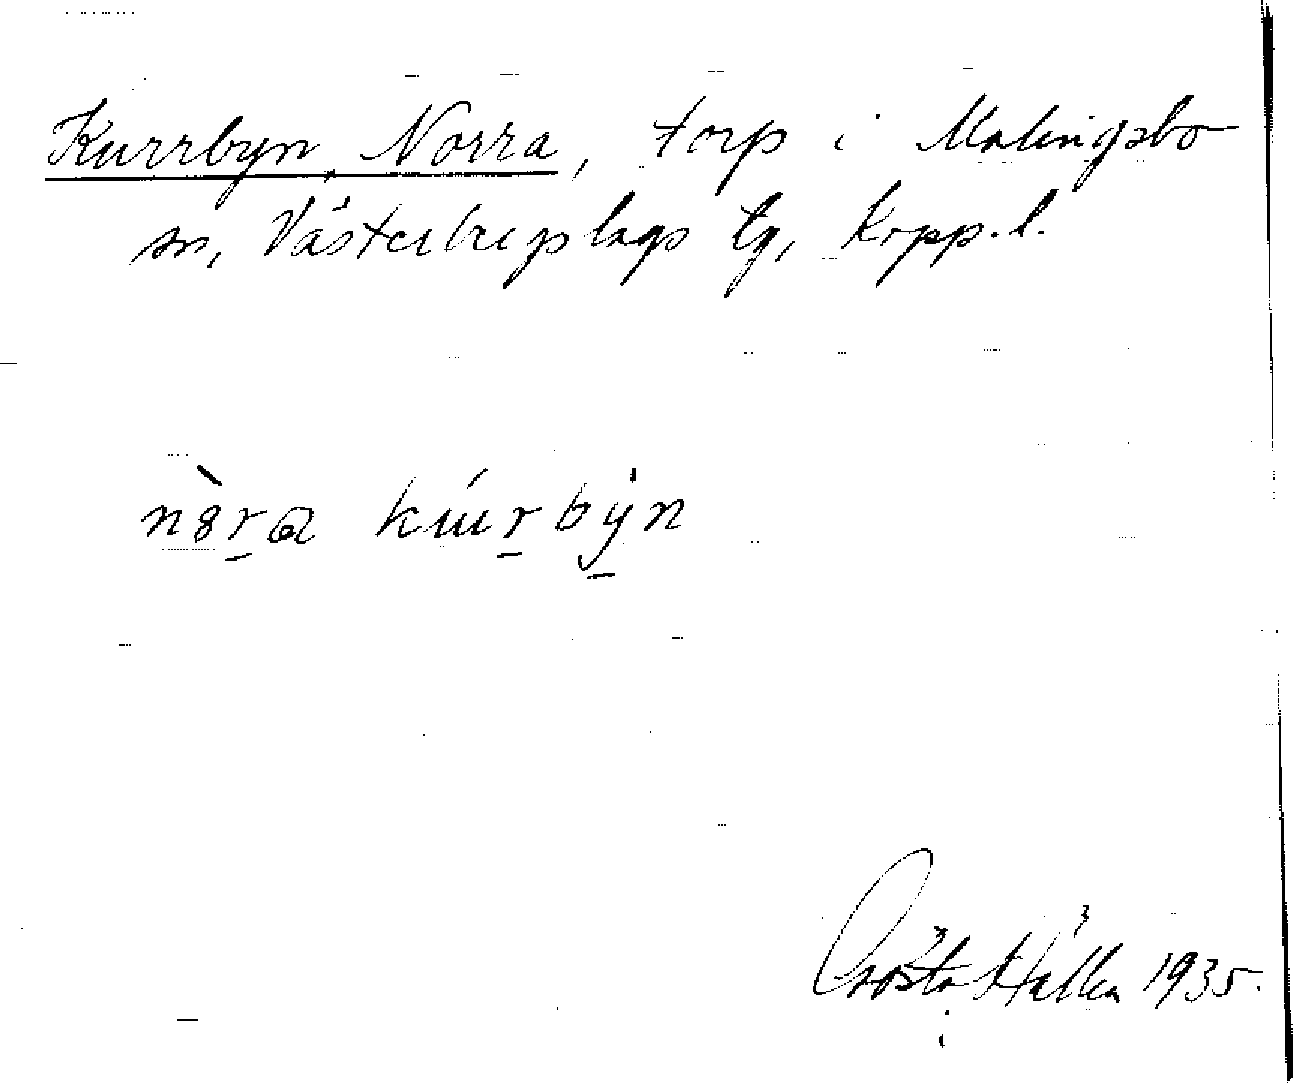 Kurrbyn, Norra, torp i Malingsbo
sn, Västerbergslags tg, Kopp. l.
nòra kúrbyn
Gösta Hallén 1935.